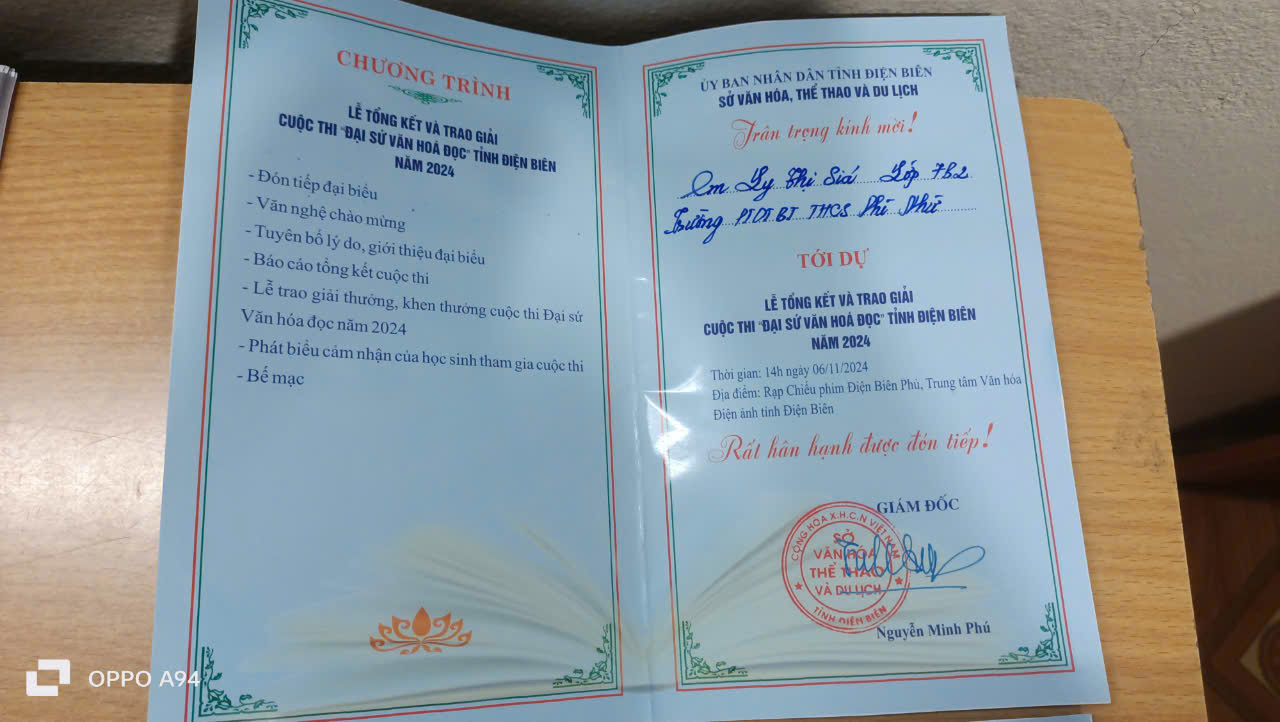 CHƯƠNG TRÌNH
LỄ TỔNG KẾT VÀ TRAO GIẢI
CUỘC THI "ĐẠI SỨ VĂN HOÁ ĐỌC" TỈNH ĐIỆN BIÊN
NĂM 2024
- Đón tiếp đại biểu
- Văn nghệ chào mừng
- Tuyên bố lý do, giới thiệu đại biểu
- Báo cáo tổng kết cuộc thi
- Lễ trao giải thưởng, khen thưởng cuộc thi Đại sứ
Văn hóa đọc năm 2024
- Phát biểu cảm nhận của học sinh tham gia cuộc thi
- Bế mạc
ỦY BAN NHÂN DÂN TỈNH ĐIỆN BIÊN
SỞ VĂN HÓA, THỂ THAO VÀ DU LỊCH
Trân trọng kính mời!
Em Ly Thị Siá Lớp 7B2
Trường PTDTBT THCS Phì Nhừ
TỚI DỰ
LỄ TỔNG KẾT VÀ TRAO GIẢI
CUỘC THI "ĐẠI SỨ VĂN HOÁ ĐỌC" TỈNH ĐIỆN BIÊN
NĂM 2024
Thời gian: 14h ngày 06/11/2024
Địa điểm: Rạp Chiếu phim Điện Biên Phủ, Trung tâm Văn hóa
Điện ảnh tỉnh Điện Biên
Rất hân hạnh được đón tiếp!
GIÁM ĐỐC
CỘNG HÒA X.H.C.N VIỆT NAM
SỞ
VĂN HÓA
THỂ THAO
VÀ DU LỊCH
TỈNH ĐIỆN BIÊN
Nguyễn Minh Phú
OPPO A94